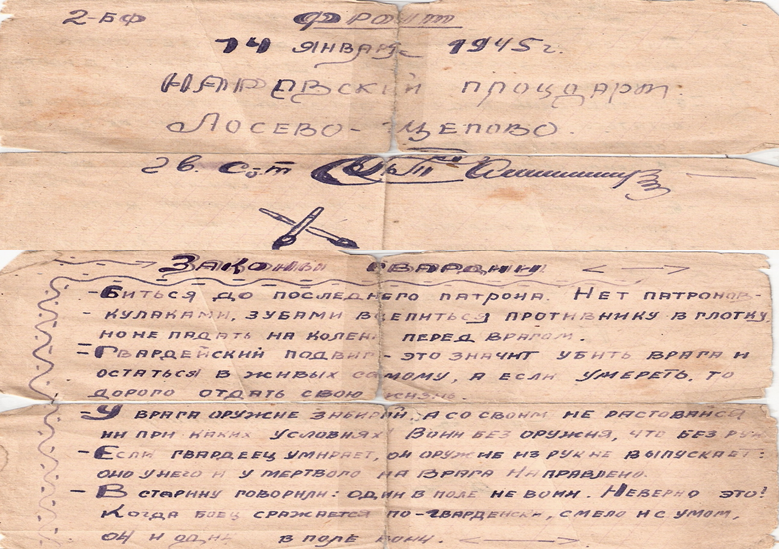 2-БФ ФРОНТ
14 ЯНВАРЯ 1945 г.
НАРЕВСКИЙ ПЛОЦДАРМ
ЛОСЕВО-ЩЕПОВО.
Гв. С-т
ЗАКОНЫ ГВАРДИИ
- БИТЬСЯ ДО ПОСЛЕДНЕГО ПАТРОНА. НЕТ ПАТРОНОВ-
КУЛАКАМИ, ЗУБАМИ ВЦЕПИТЬСЯ ПРОТИВНИКУ В ГЛОТКУ
НО НЕ ПАДАТЬ НА КОЛЕНИ ПЕРЕД ВРАГОМ.
- ГВАРДЕЙСКИЙ ПОДВИГ - ЭТО ЗНАЧИТ УБИТЬ ВРАГА И
ОСТАТЬСЯ В ЖИВЫХ САМОМУ, А ЕСЛИ УМЕРЕТЬ, ТО
ДОРОГО ОТДАТЬ СВОЮ ЖИЗНЬ.
- У ВРАГА ОРУЖИЕ ЗАБИРАЙ, А СО СВОИМ НЕ РАСТОВАЙСЯ
НИ ПРИ КАКИХ УСЛОВИЯХ. ВОИН БЕЗ ОРУЖИЯ, ЧТО БЕЗ РУК
- ЕСЛИ ГВАРДЕЕЦ УМИРАЕТ, ОН ОРУЖИЕ ИЗ РУК НЕ ВЫПУСКАЕТ:
ОНО У НЕГО И У МЕРТВОГО НА ВРАГА НАПРАВЛЕНО.
- В СТАРИНУ ГОВОРИЛИ: ОДИН В ПОЛЕ НЕ ВОИН. НЕВЕРНО ЭТО!
КОГДА БОЕЦ СРАЖАЕТСЯ ПО-ГВАРДЕЙСКИ, СМЕЛО И С УМОМ,
ОН И ОДИН В ПОЛЕ ВОИН.